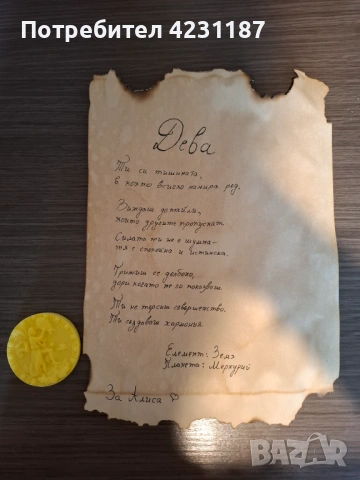 Потребител 4231187
Дева
Ти си тишината,
в която всичко намира ред.
Виждаш детайла,
който другите пропускат.
Силата ти не е шумна -
тя е спокойна и истинска.
Грижиш се дълбоко,
дори когато не го показваш.
Ти не търсиш съвършенство.
Ти създаваш хармония.
Елемент: Земя
Планета: Меркурий
За Алиса ♡
BAZAR